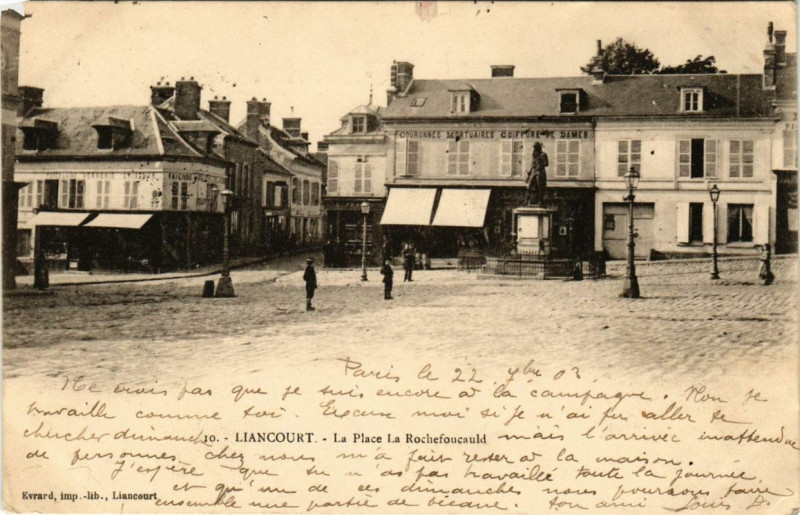 COURONNES MORTUAIRES COIFFURE DE DAMES
FAIENCE
Paris le 22 7bre 03
Ne crois pas que je suis encore à la campagne. Non je
travaille comme toi. Excuse moi si je n'ai pu aller te
chercher dimanche mais l'arrivée inattendue
10. - LIANCOURT. - La Place La Rochefoucauld
de personnes chez nous m'a fait rester à la maison.
J'espère que tu n'as pas travaillé toute la journée
et qu'un de ces dimanches nous pourrons faire
Evrard, imp.-lib., Liancourt
ensemble une partie de bécane. ton ami Louis D.